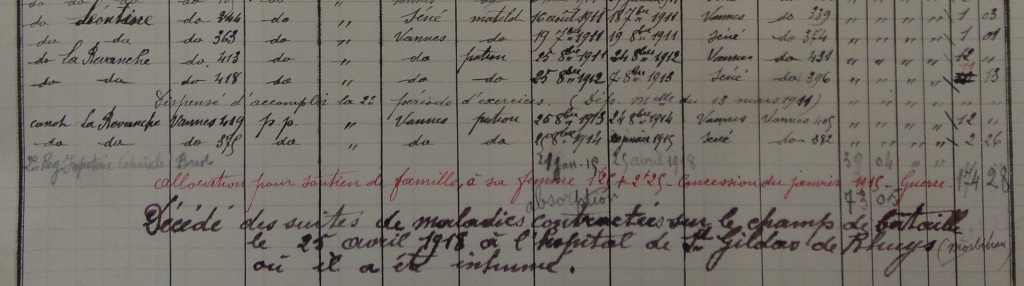 do do 344 do " Séné matelot 16 août 1911 18 7bre 1911 Vannes do 339 " " " " 1 03
do du do 363 do " Vannes do 19 7bre 1911 19 8bre 1911 Séné do 354 " " " " 1 01
do La Revanche do 413 do " do patron 25 8bre 1911 24 8bre 1912 Vannes do 431 " " " " 12
do du do 418 do " do do 25 8bre 1912 7 8bre 1913 Séné do 396 " " " " 11 13
Dispensé d'accomplir la 2e période d'exercices. (Dép. melle du 13 mars 1911) " " " " "
canot La Revanche Vannes 419 p.p. " Vannes patron 26 8bre 1913 24 8bre 1914 Vannes Vannes 415 " " " " 12 "
do do do 375 do " do do 25 8bre 1914 1915 Séné do 382 " " " " 2 26
2e Reg. Infanterie Coloniale Brest 21 Jan. 15 25 avril 1918 39 04 " "
allocation pour soutien de famille, à sa femme 1f25 + 2f25 - Concession du janvier 1915 - Guerre 174 28
absorption 73 05
Décédé des suites de maladies contractées sur le champ de bataille
le 25 avril 1918 à l'hôpital de St Gildas de Rhuys (Morbihan)
où il a été inhumé.